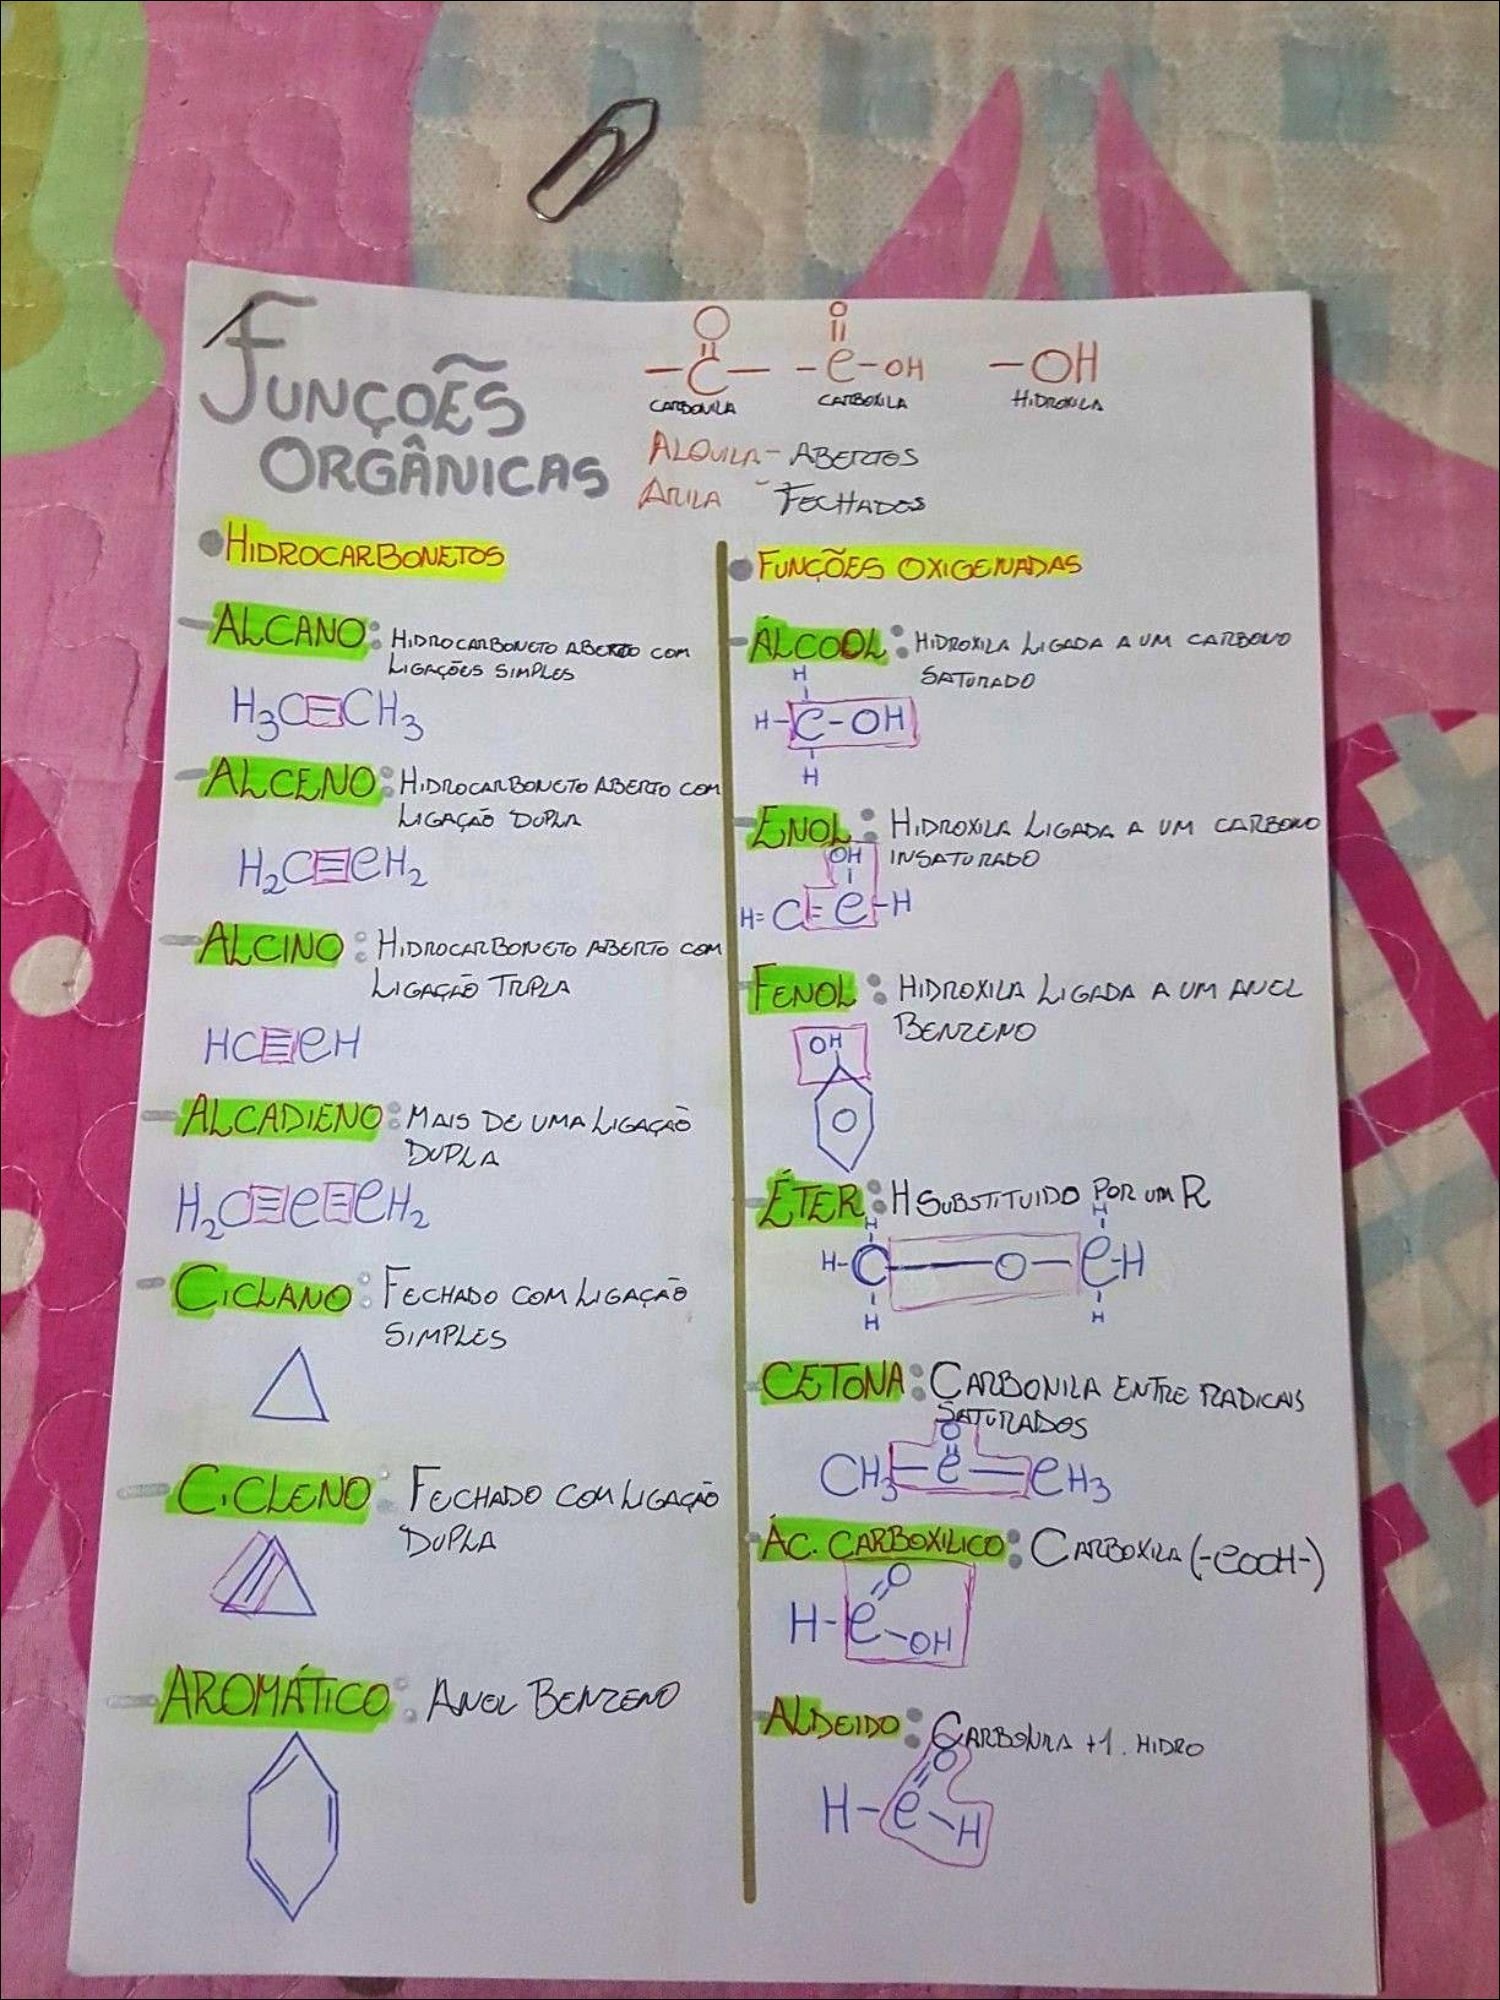 FUNÇÕES
ORGÂNICAS
O
-C-
CARBONILA
O
-C-OH
CARBOXILA
-OH
HIDROXILA
ALQUILA - ABERTOS
ARILA - FECHADOS
HIDROCARBONETOS
- ALCANO: HIDROCARBONETO ABERTO COM
LIGAÇÕES SIMPLES
H3C-CH3
- ALCENO: HIDROCARBONETO ABERTO COM
LIGAÇÃO DUPLA
H2C=CH2
- ALCINO: HIDROCARBONETO ABERTO COM
LIGAÇÃO TRIPLA
HC≡CH
- ALCADIENO: MAIS DE UMA LIGAÇÃO
DUPLA
H2C=C=CH2
- CICLANO: FECHADO COM LIGAÇÃO
SIMPLES
- CICLENO: FECHADO COM LIGAÇÃO
DUPLA
- AROMÁTICO: ANEL BENZENO
FUNÇÕES OXIGENADAS
- ÁLCOOL: HIDROXILA LIGADA A UM CARBONO
SATURADO
H
H-C-OH
H
- ENOL: HIDROXILA LIGADA A UM CARBONO
INSATURADO
OH
H=C=C-H
- FENOL: HIDROXILA LIGADA A UM ANEL
BENZENO
OH
- ÉTER: H SUBSTITUIDO POR UM R
H H
H-C-O-C-H
H H
- CETONA: CARBONILA ENTRE RADICAIS
SATURADOS
O
CH3-C-CH3
- ÁC. CARBOXILICO: CARBOXILA (-COOH-)
O
H-C
-OH
- ALDEIDO: CARBONILA +1. HIDRO
O
H-C
-H